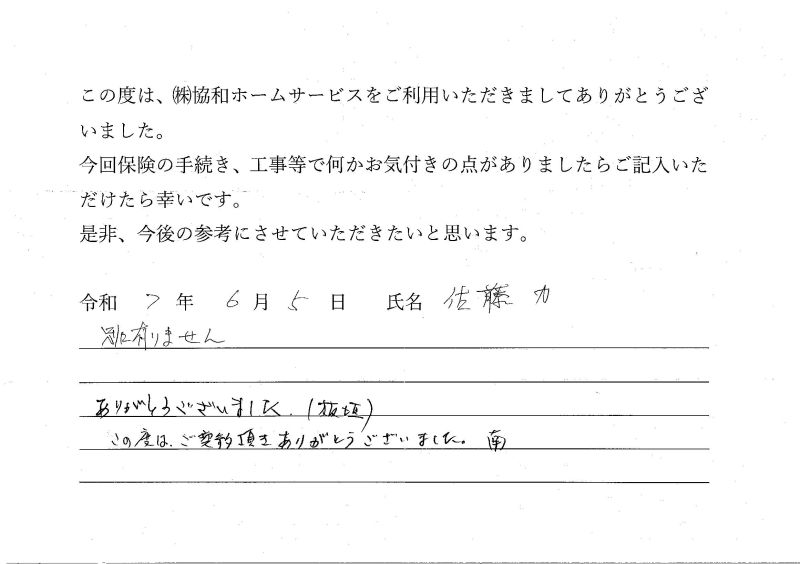 この度は、㈱協和ホームサービスをご利用いただきましてありがとうござ
いました。
今回保険の手続き、工事等で何かお気付きの点がありましたらご記入いた
だけたら幸いです。
是非、今後の参考にさせていただきたいと思います。
令和 7 年 6 月 5 日 氏名 佐藤 力
有りません
ありがとうございました。(板垣)
この度は、ご契約頂きありがとうございました。南